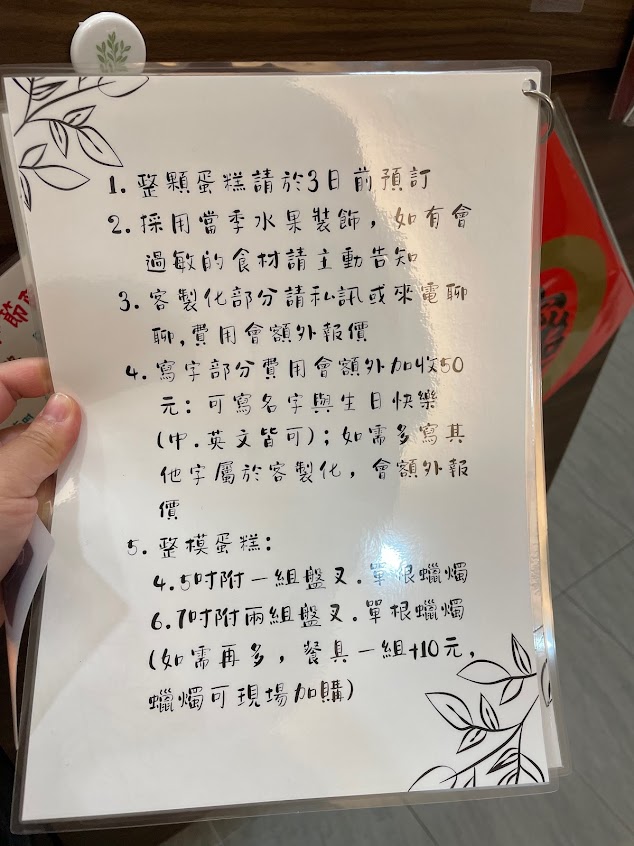 1. 整顆蛋糕請於3日前預訂
2. 採用當季水果裝飾，如有會
過敏的食材請主動告知
3. 客製化部分請私訊或來電聊
聊,費用會額外報價
4. 寫字部分費用會額外加收50
元：可寫名字與生日快樂
(中.英文皆可)；如需多寫其
他字屬於客製化，會額外報
價
5. 整模蛋糕：
4.5吋附一組盤叉.單根蠟燭
6.7吋附兩組盤叉.單根蠟燭
(如需再多，餐具一組+10元,
蠟燭可現場加購)
節